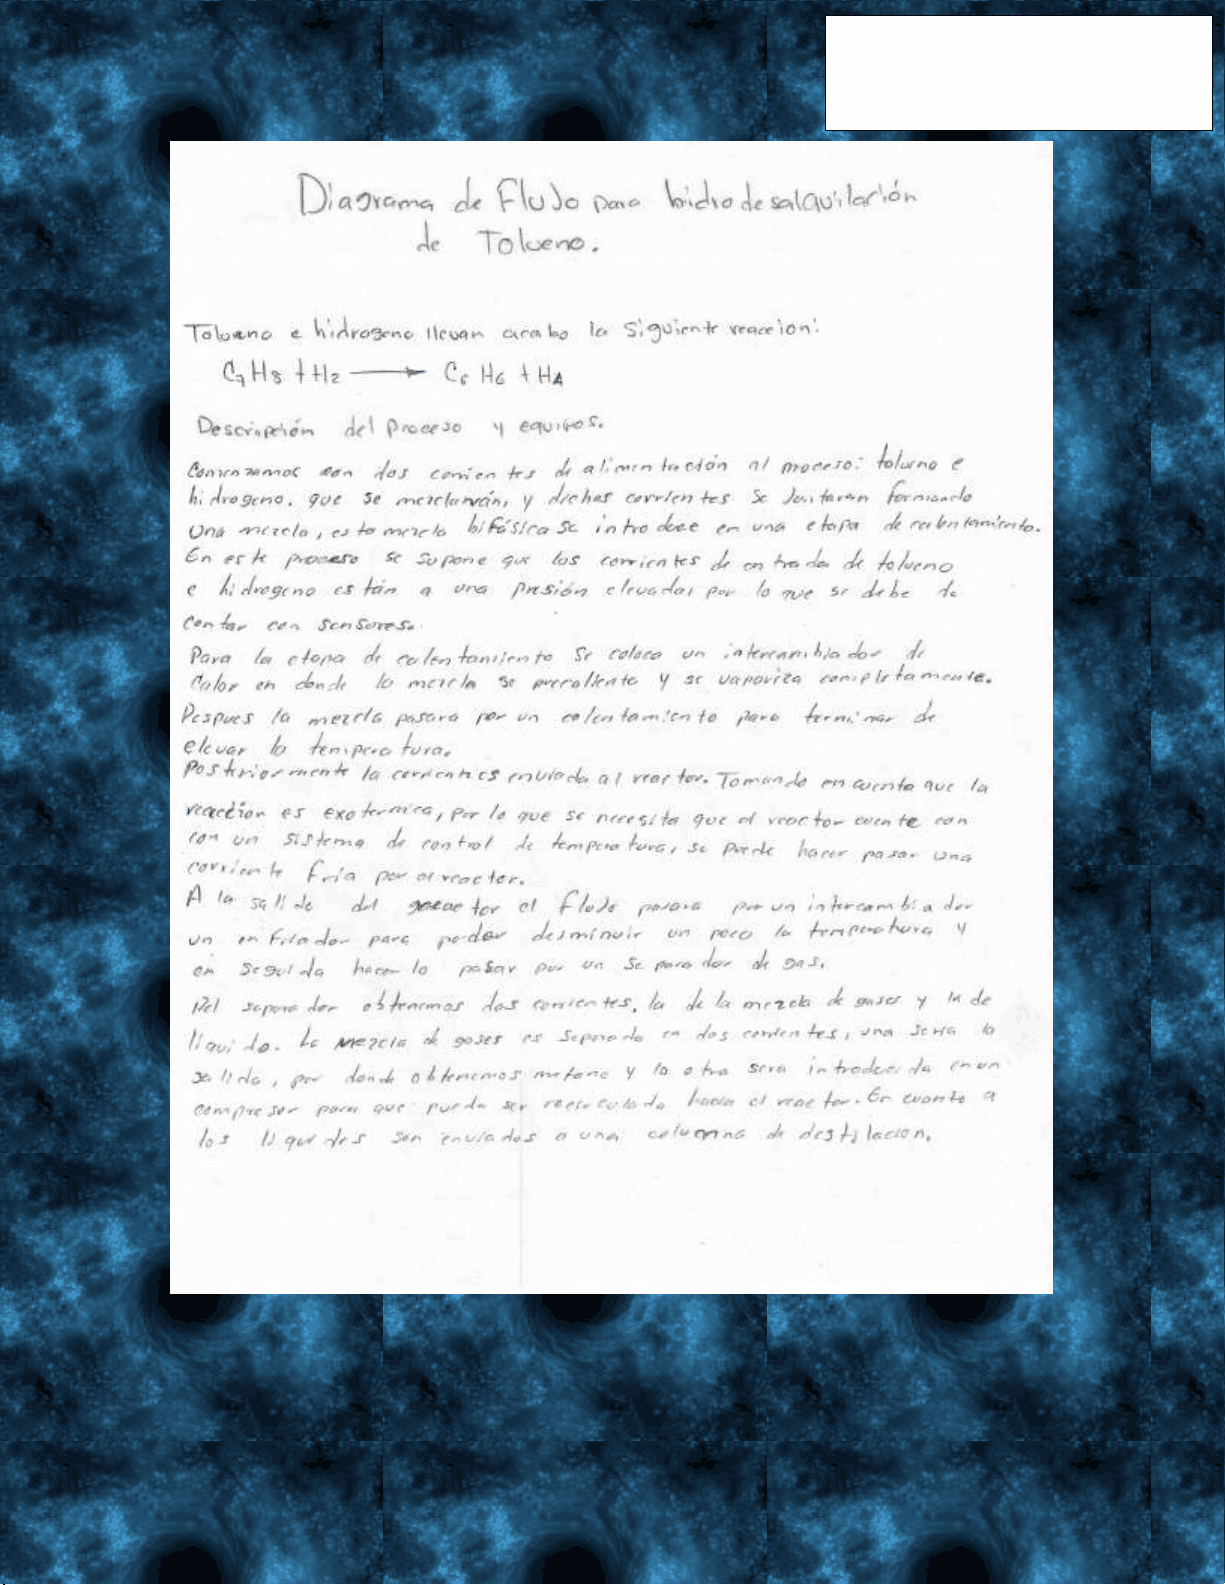 Diagrama de Flujo para hidrodesalquilación
de Tolueno.
Tolueno e hidrogeno llevan acabo la siguiente reaccion:
C7H8 + H2 → C6H6 + H4
Descripción del proceso y equipos.
Comenzamos con dos corrientes de alimentación al proceso: tolueno e
hidrogeno. que se mezclarván, y dichas corrientes se juntaran formando
una mezcla, esta mezcla bifásica se introduce en una etapa de calentamiento.
En este proceso se supone que las corrientes de entrada de tolueno
e hidrogeno están a una presión elevada, por lo que se debe de
contar con sensores.
Para la etapa de calentamiento se coloca un intercambiador de
Calor en donde la mezcla se precalienta y se vaporiza completamente.
Despues la mezcla pasara por un calentamiento para terminar de
elevar la temperatura.
Posteriormente la corriente es enviada al reactor. Tomando en cuenta que la
reacción es exotermica, por lo que se necesita que el reactor cuente con
con un sistema de control de temperatura, se puede hacer pasar una
corriente fría por el reactor.
A la salida del reactor el flujo pasara por un intercambiador
un enfriador para poder desminuir un poco la temperatura y
en seguida hacerlo pasar por un separador de gas.
Del separador obtenemos dos corrientes, la de la mezcla de gases y la de
liquido. La mezcla de gases es separada en dos corrientes, una seria la
salida, por donde obtenemos metano y la otra sera introducida en un
compresor para que pueda ser recirculada hacia el reactor. En cuanto a
los liquidos son enviados a una columna de destilacion.